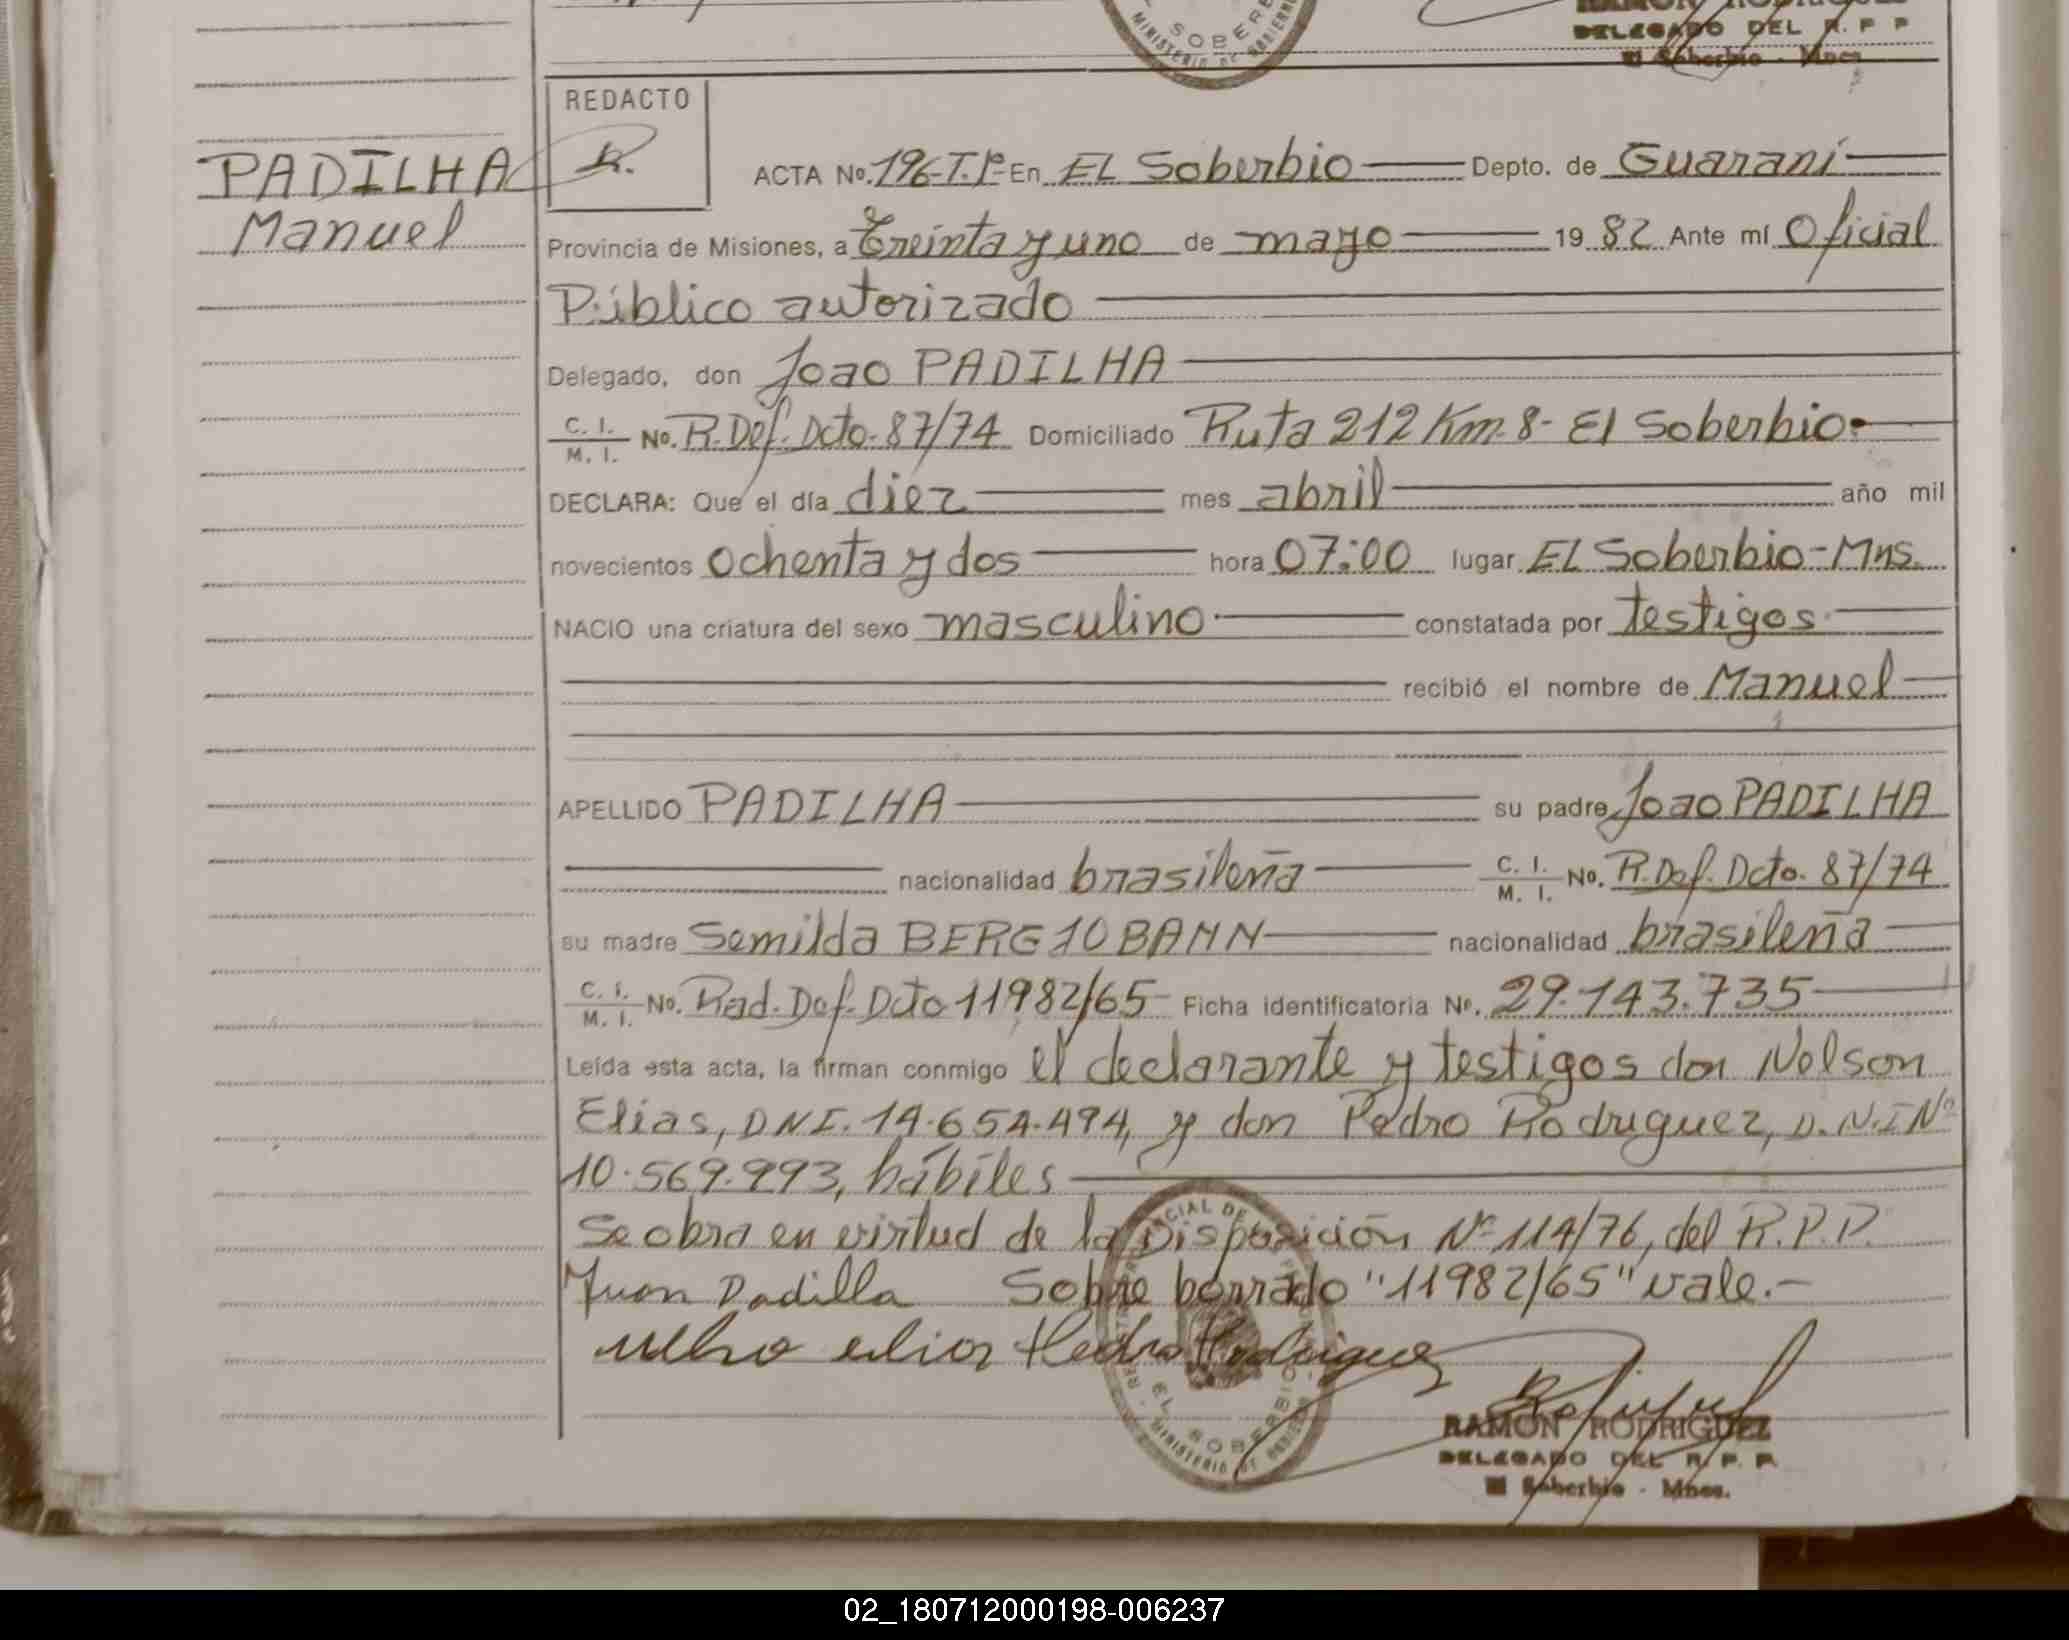 SOBER
MINISTERIO DE GOBIERNO
DELEGADO DEL R. P. P
El Soberbio - Mnes
REDACTO
R.
PADILHA
Manuel
ACTA No. 196-T.Iº- En EL Soberbio Depto. de Guaraní
Provincia de Misiones, a treinta y uno de mayo 19 82 Ante mí Oficial
Público autorizado
Delegado, don Joao PADILHA
C. I. / M. I. No. R. Def. Dcto. 87/74 Domiciliado Ruta 212 Km. 8- El Soberbio.
DECLARA: Que el día diez mes abril año mil
novecientos ochenta y dos hora 07:00 lugar EL Soberbio-Mns.
NACIO una criatura del sexo masculino constatada por testigos
recibió el nombre de Manuel
APELLIDO PADILHA su padre Joao PADILHA
nacionalidad brasileña C. I. / M. I. No. R. Def. Dcto. 87/74
su madre Semilda BERGIOBANN nacionalidad brasileña
C. I. / M. I. No. Rad. Def. Dcto 11982/65 Ficha identificatoria Nº. 29.143.735
Leída esta acta, la firman conmigo el declarante y testigos don Nelson
Elias, DNI. 14.654.494, y don Pedro Rodriguez, D.N.I Nº
10.569.993, hábiles
Se obra en virtud de la Disposición Nº 114/76, del R.P.P.
Juan Padilla Sobre borrado "11982/65" vale.-
Pedro Rodriguez
EL SOBERBIO
MINISTERIO DE GOBIERNO
RAMON RODRIGUEZ
DELEGADO DEL R. P. P.
El Soberbio - Mnes.
02_180712000198-006237